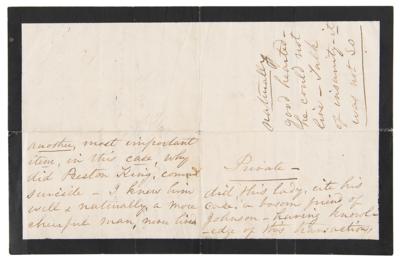 another, most important
item, in this case, why
did Preston King, commit
suicide - I knew him
well & naturally a more
cheerful man, never lived
naturally
good hearted -
he could not
live - Talk
of insanity - it
was not so
Private -
did this lady, cite his
case, a bosom friend of
Johnson - having knowl-
-edge of this transaction,